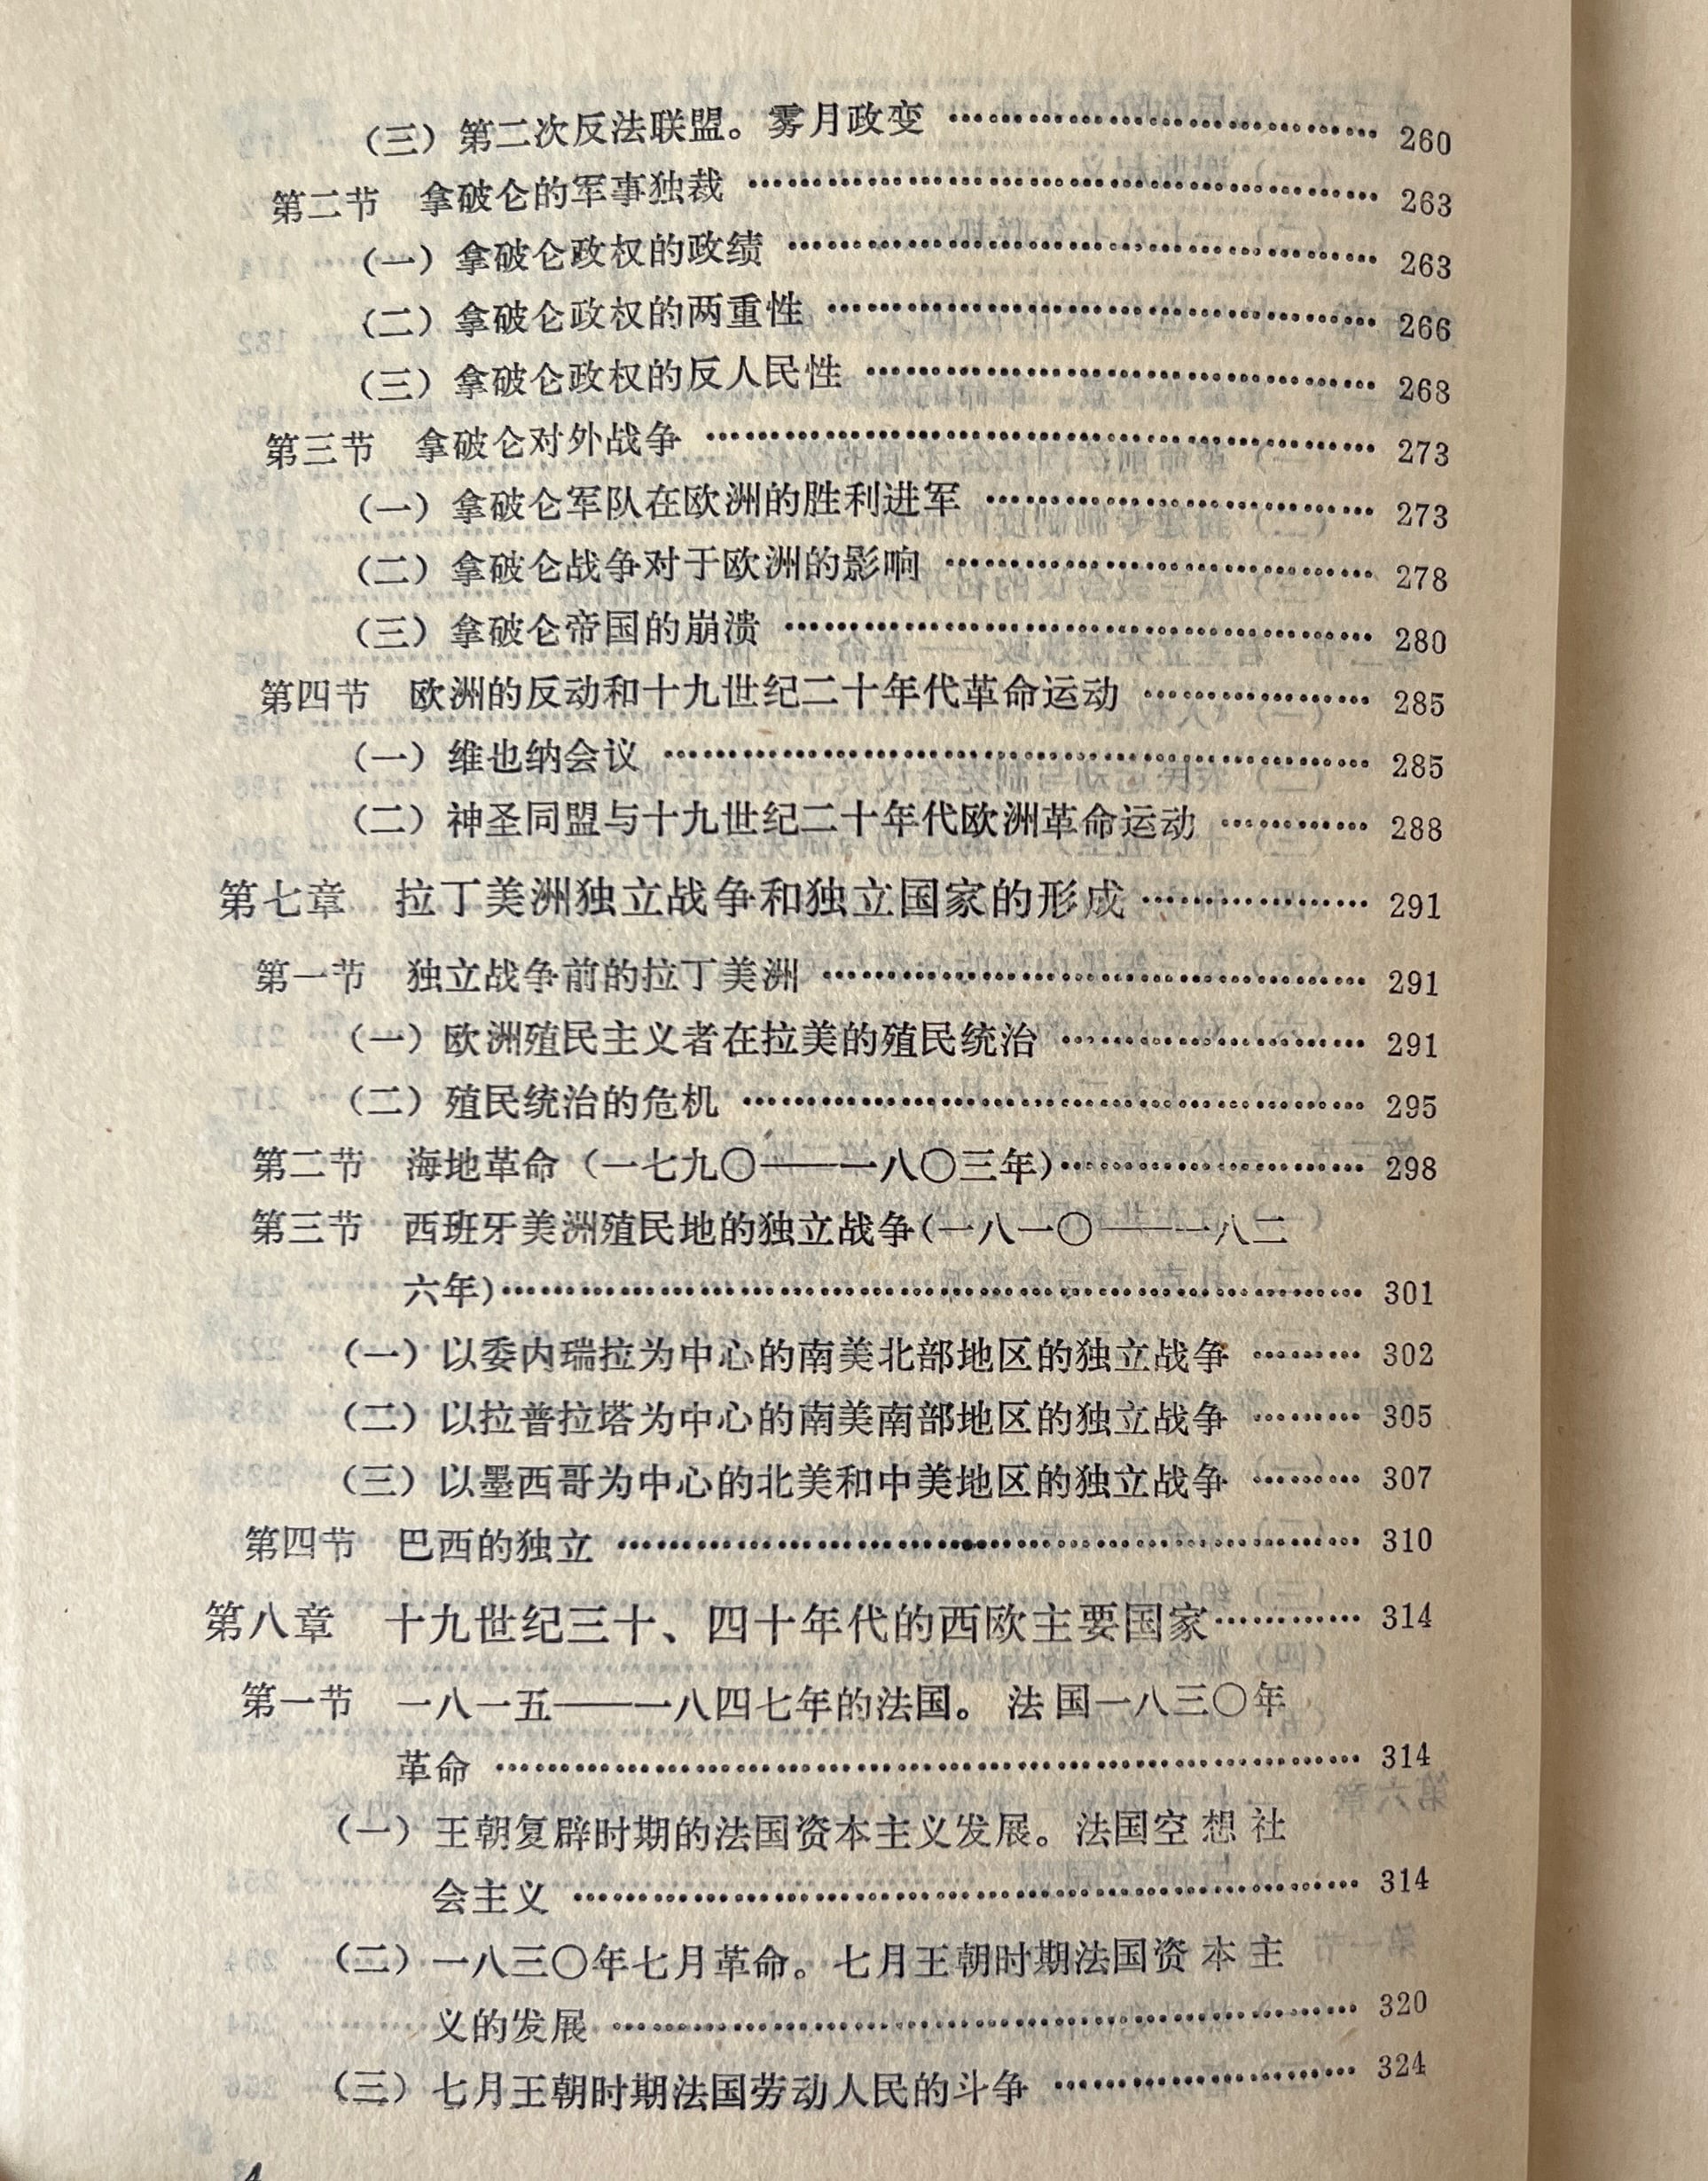 （三）第二次反法联盟。雾月政变 ……………………………… 260
第二节　拿破仑的军事独裁 ……………………………… 263
（一）拿破仑政权的政绩 ……………………………… 263
（二）拿破仑政权的两重性 ……………………………… 266
（三）拿破仑政权的反人民性 ……………………………… 268
第三节　拿破仑对外战争 ……………………………… 273
（一）拿破仑军队在欧洲的胜利进军 ……………………… 273
（二）拿破仑战争对于欧洲的影响 ……………………… 278
（三）拿破仑帝国的崩溃 ……………………………… 280
第四节　欧洲的反动和十九世纪二十年代革命运动 ……………… 285
（一）维也纳会议 ……………………………… 285
（二）神圣同盟与十九世纪二十年代欧洲革命运动 ………… 288
第七章　拉丁美洲独立战争和独立国家的形成 ……………… 291
第一节　独立战争前的拉丁美洲 ……………………………… 291
（一）欧洲殖民主义者在拉美的殖民统治 ……………………… 291
（二）殖民统治的危机 ……………………………… 295
第二节　海地革命（一七九〇——一八〇三年）……………………… 298
第三节　西班牙美洲殖民地的独立战争（一八一〇——一八二
六年）……………………………… 301
（一）以委内瑞拉为中心的南美北部地区的独立战争 ……… 302
（二）以拉普拉塔为中心的南美南部地区的独立战争 ……… 305
（三）以墨西哥为中心的北美和中美地区的独立战争 ……… 307
第四节　巴西的独立 ……………………………… 310
第八章　十九世纪三十、四十年代的西欧主要国家………… 314
第一节　一八一五——一八四七年的法国。法国一八三〇年
革命 ……………………………… 314
（一）王朝复辟时期的法国资本主义发展。法国空想社
会主义 ……………………………… 314
（二）一八三〇年七月革命。七月王朝时期法国资本主
义的发展 ……………………………… 320
（三）七月王朝时期法国劳动人民的斗争 ……………………… 324
4